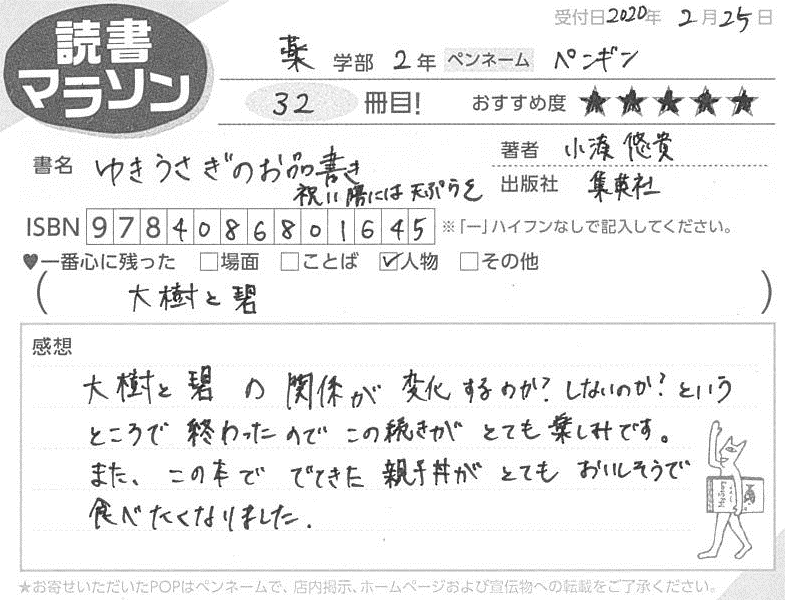 受付日2020年 2月25日
読書
マラソン
薬 学部 2年 ペンネーム ペンギン
32 冊目! おすすめ度 ★★★★★
書名 ゆきうさぎのお品書き
祝い膳には天ぷらを
著者 小湊 悠貴
出版社 集英社
ISBN 9784086801645 ※「ー」ハイフンなしで記入してください。
♥一番心に残った □場面 □ことば ☑人物 □その他
( 大樹と碧 )
感想
大樹と碧の関係が変化するのか?しないのか?という
ところで終わったのでこの続きがとても楽しみです。
また、この本ででてきた親子丼がとてもおいしそうで
食べたくなりました.
★お寄せいただいたPOPはペンネームで、店内掲示、ホームページおよび宣伝物への転載をご了承ください。